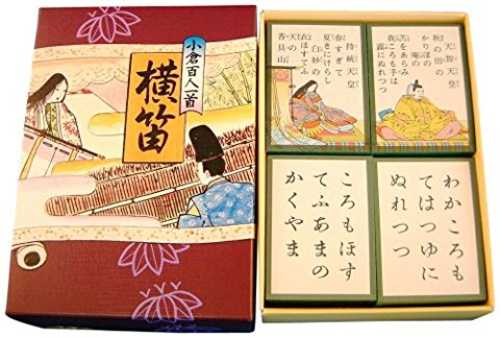 小倉百人一首
横笛
天智天皇
秋の田の
かりほの
庵の
苫をあらみ
ころも手は
露にぬれつつ
持統天皇
春すぎて
夏きにけらし
白妙の
衣ほすてふ
天の
香具山
わかころも
てはつゆに
ぬれつつ
ころもほす
てふあまの
かくやま